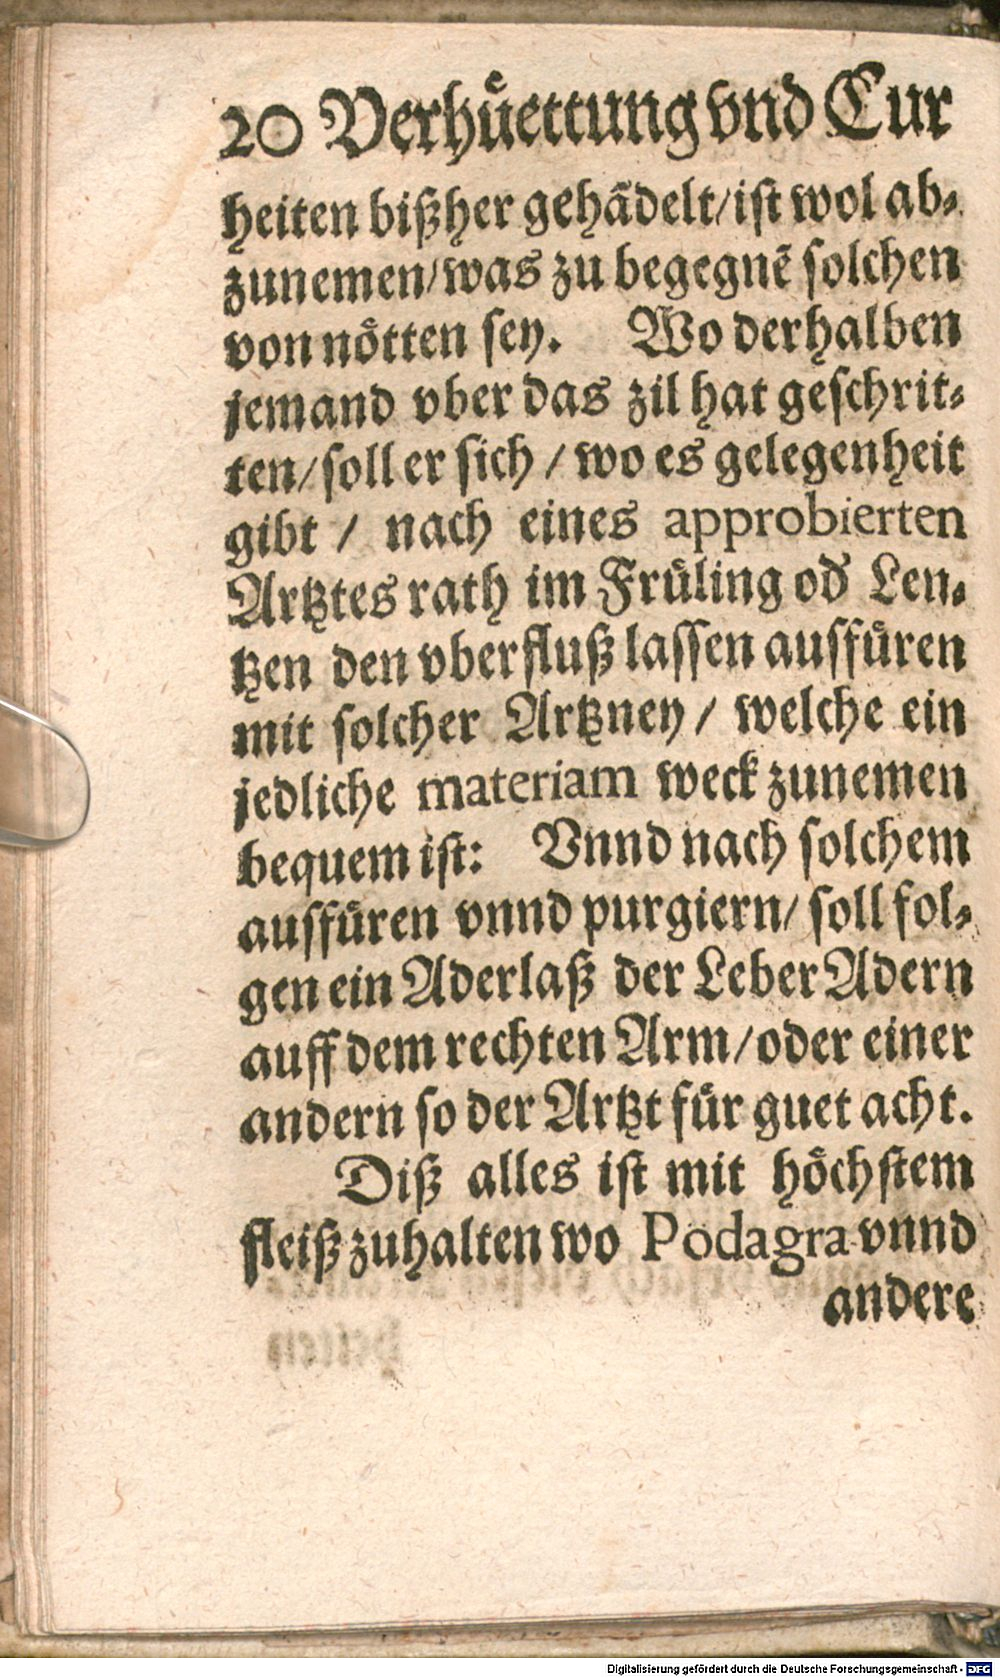 20 Verhuͤettung vnd Cur
heiten bißher gehãdelt/ist wol ab-
zunemen/was zu begegnẽ solchen
von noͤtten sey. Wo derhalben
jemand vber das zil hat geschrit-
ten/soll er sich / wo es gelegenheit
gibt / nach eines approbierten
Artztes rath im Fruͤling od̕ Len-
tzen den vberfluß lassen ausfuͤren
mit solcher Artzney / welche ein
jedliche materiam weck zunemen
bequem ist: Vnnd nach solchem
ausfuͤren vnnd purgiern/ soll fol-
gen ein Aderlaß der Leber Adern
auff dem rechten Arm/oder einer
andern so der Artzt fuͤr guet acht.
Diß alles ist mit hoͤchstem
fleiß zuhalten wo Podagra vnnd
andere
Digitalisierung gefördert durch die Deutsche Forschungsgemeinschaft - DFG